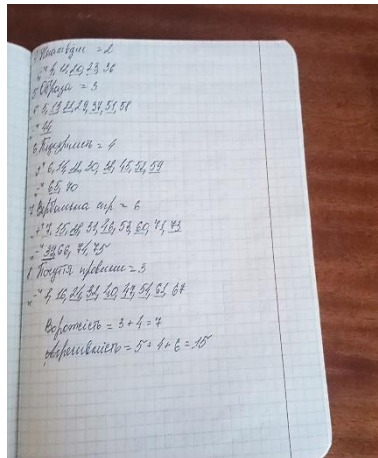 = 2
"+" 4, 12, 20, 23, 36
5. Образа = 3
"+" 5, 13, 21, 29, 37, 51, 58
"-" 44
6. Підозрілість = 4
"+" 6, 14, 22, 30, 38, 45, 52, 59
"-" 65, 70
7. Вербальна агр = 6
"+" 7, 15, 31, 46, 53, 60, 71, 73
"-" 39, 66, 74, 75
8. Почуття провини = 3
16, 24, 32, 40, 47, 54, 61, 67
Ворожість = 3 + 4 = 7
Агресивність = 5 + 4 + 6 = 15